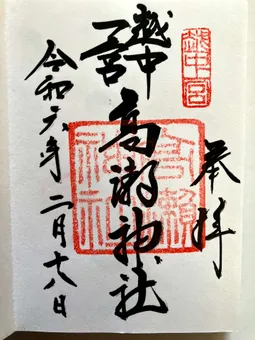 奉拝
越中
一宮
高瀬神社
令和六年二月十八日
越中一宮
高瀬神社